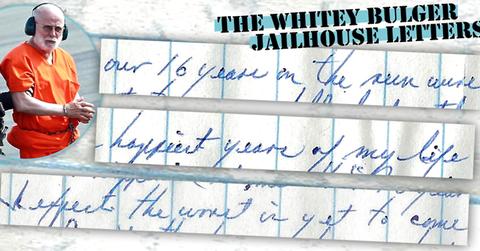 THE WHITEY BULGER
JAILHOUSE LETTERS
our 16 years on the run were
happiest years of my life
I expect the worst is yet to come